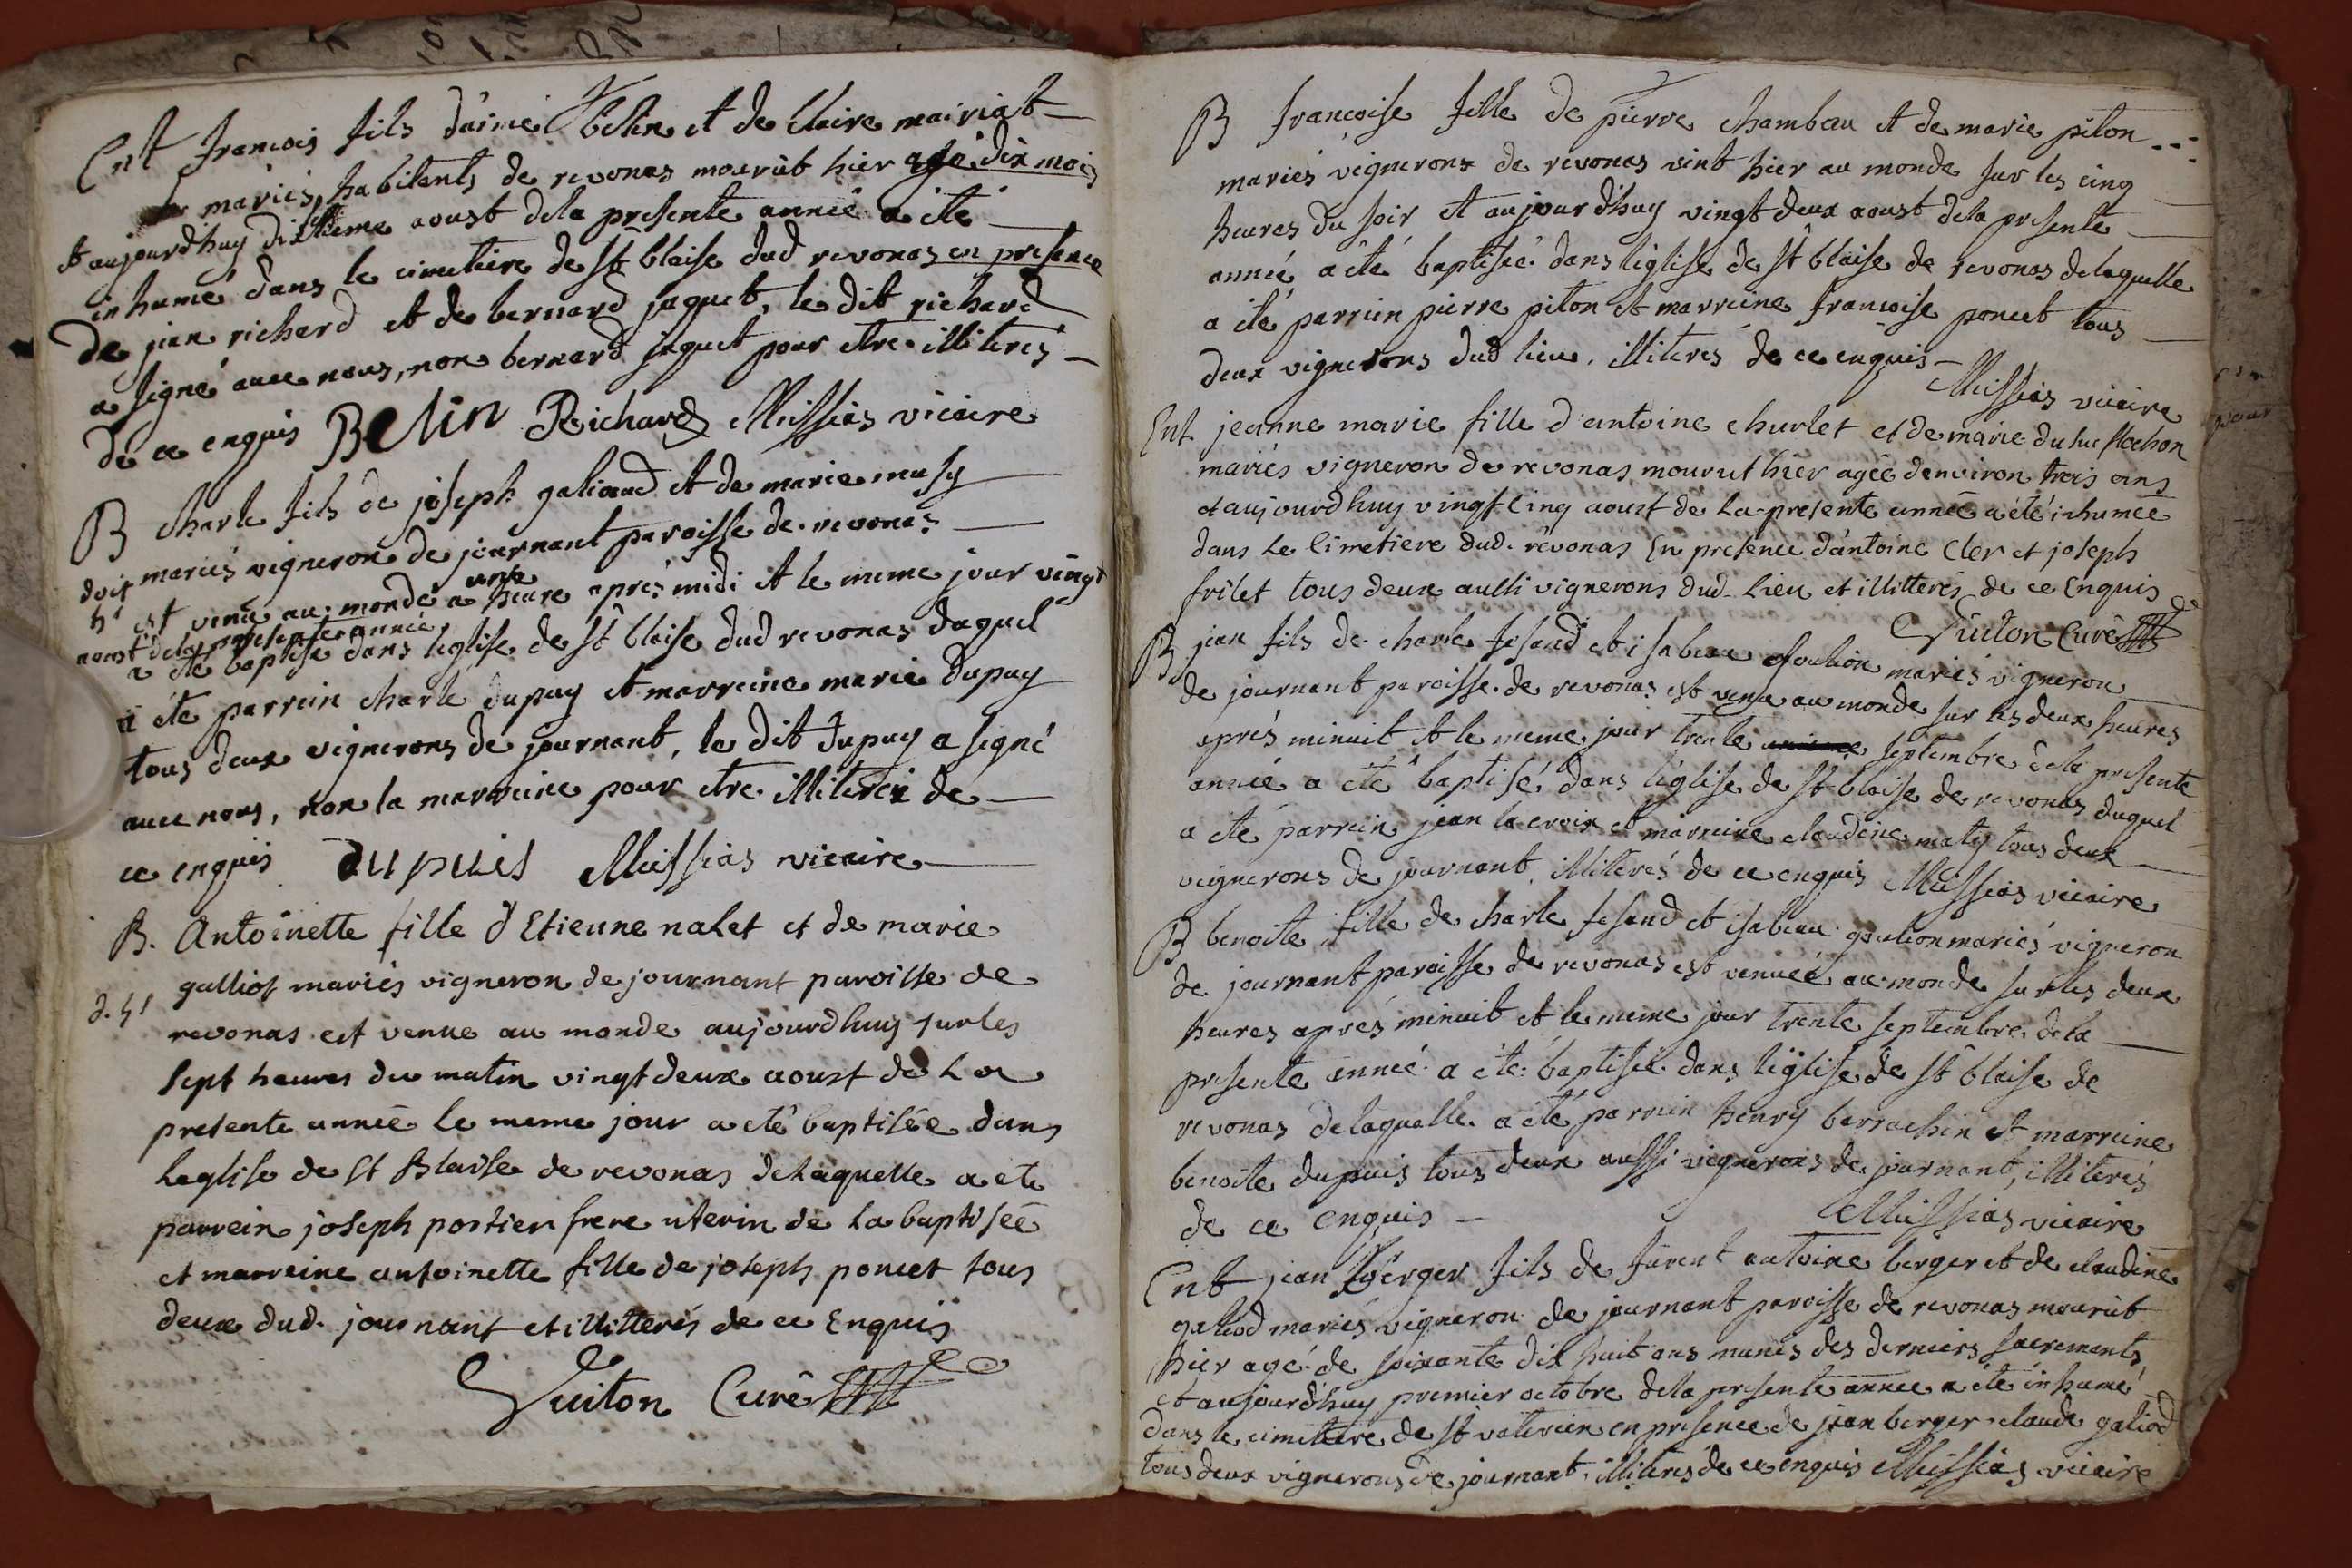 Ent francois fils d'aimé belin et de claire mairiat
mariés, habitents de revonas mourut hier agé dix mois
et aujourdhuy dixieme aoust dela presente anneé a eté
inhumé dans le cimetiere de st blaise dud revonas en presence
de jean richard et de bernard jaquet, le dit richard
a signé avec nous, non bernard jaquet pour etre illiterés
de ce enquis Belin Richard Missias vicaire
B charle fils de joseph galiaud et de marie musy
mariés vigneron de journant paroisse de revonas
doit
h' est venu au monde a une heure apres midi et le meme jour vingt
aoust dela presente anneé
a eté baptisé dans leglise de st blaise dud revonas duquel
a eté parrein charle dupuy et marreine marie dupuy
tous deux vignerons de journant, le dit dupuy a signé
avec nous, non la marreine pour etre illiterée de
ce enquis dupuis Missias vicaire
B. Antoinette fille d'Etienne nalet et de marie
galliot mariés vigneron de journant paroisse de
d. h'
revonas est venue au monde aujourdhuy sur les
sept heures du matin vingt deux aoust de La
presente année le meme jour a eté baptisée dans
Leglise de St Blaise de revonas de Laquelle a ete
parrein joseph portier frere uterin de La baptisée
et marreine antoinette fille de joseph poncet tous
deux dud. journant et illitterés de ce Enquis
Vuiton Curé
B francoise fille de pierre chambeau et de marie piton
mariés vignerons de revonas vint hier au monde sur les cinq
heures du soir et aujourdhuy vingt deux aoust dela presente
anneé a eté baptiseé dans léglise de st blaise de revonas delaquelle
a eté parrein pierre piton et marreine francoise poncet tous
deux vignerons dud lieu. illiterés de ce enquis
Missias vicaire
Ent. jeanne marie fille d'antoine churlet et de marie du suc flochon
mariés vigneron de revonas mourut hier agée denviron trois ans
et aujourdhuy vingt cinq aoust de La presente année a eté inhumée
dans Le Cimetiere dud. revonas En presence dantoine Cler et joseph
frilet tous deux aussi vignerons dud. Lieu et illitterés de ce Enquis
Vuiton Curé
B jean fils de charle fesand et isabeau goulion mariés vigneron
de journant paroisse de revonas est venu au monde sur les deux heures
aprés minuit et le meme jour trente septembre dela presente
anneé a eté baptisé dans léglise de st blaise de revonas duquel
a eté parrein jean lacroix et marreine claudine maty tous deux
vignerons de journant. illiterés de ce enquis Missias vicaire
B benoite fille de charle fesand et isabeau goulion mariés vigneron
de journant paroisse de revonas est venueé au monde sur les deux
heures aprés minuit et le meme jour trente septembre dela
presente anneé a eté baptiseé dans léglise de st blaise de
revonas delaquelle a eté parrein henry barrachin et marreine
benoite dupuis tous deux aussi vignerons de journant, illiterés
de ce enquis
Missias vicaire
Ent jean berger fils de furent antoine berger et de claudine
galiod mariés vigneron de journant paroisse de revonas mourut
hier agé de soixante dix huit ans munis des derniers sacrements
et aujourdhuy premier octobre dela presente anneé a eté inhumé
dans le cimetiere de st valerien en presence de jean berger claude galiod
tous deux vignerons de journant. illiterés de ce enquis Missias vicaire